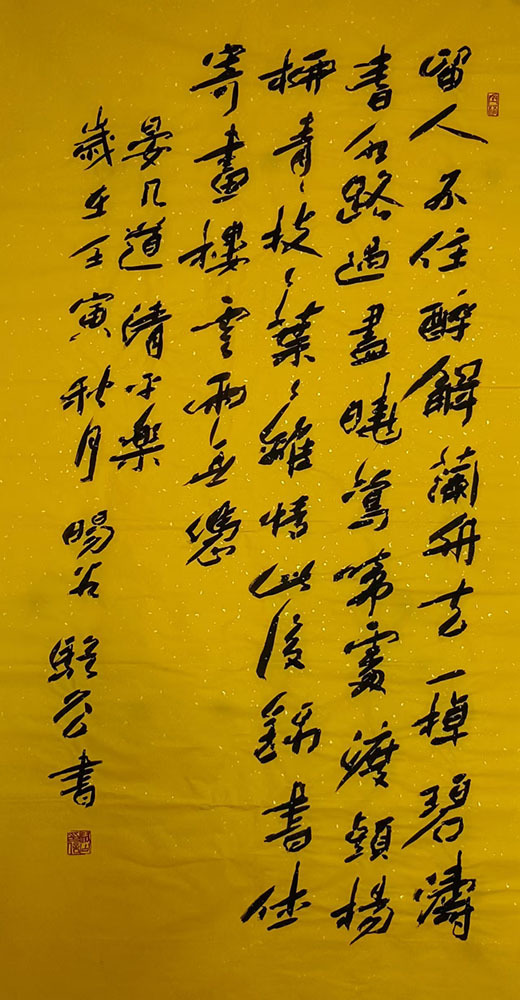 留人不住醉解蘭舟去一棹碧濤
春水路過盡曉鶯啼處渡頭楊
柳青々枝々葉々離情此後錦書休
寄畫樓雲雨无憑
晏几道清平樂
歲在壬寅秋月暘谷公書